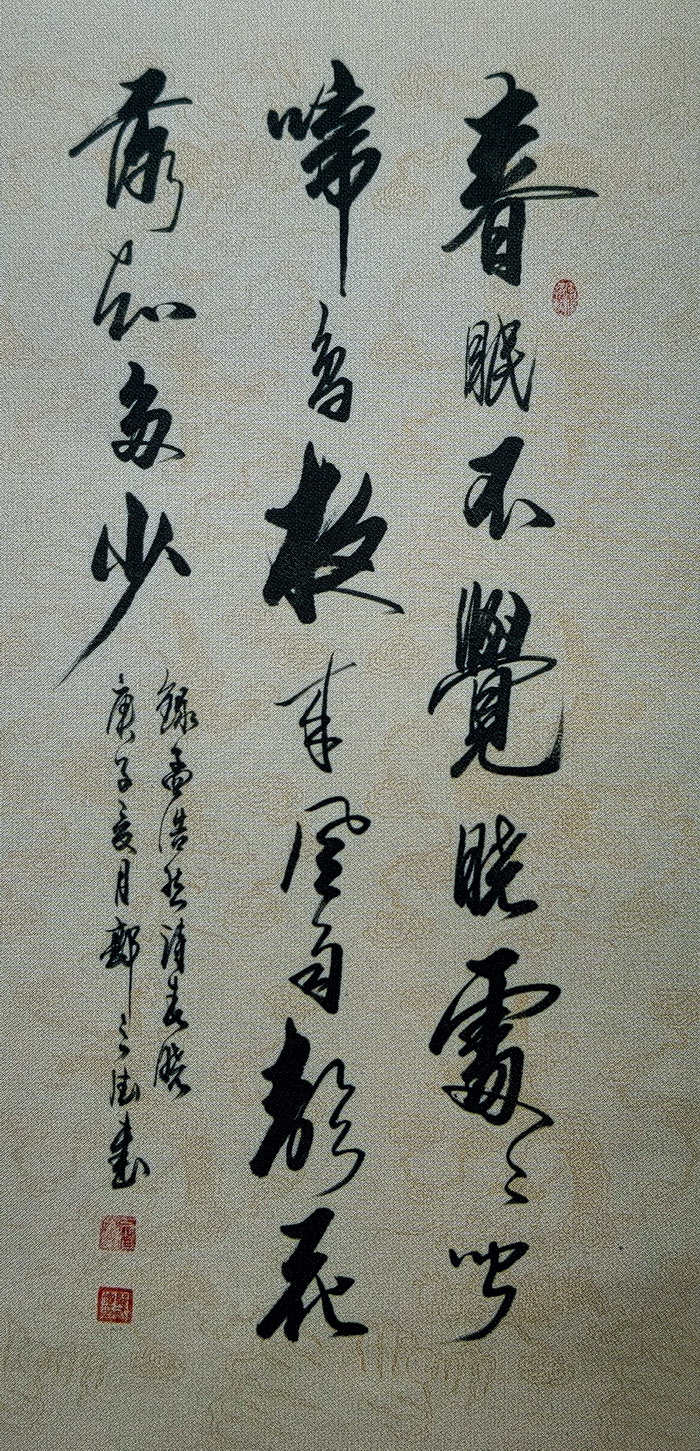 春眠不覺曉處々聞
啼鳥夜来風雨聲花
落知多少
録孟浩然詩春曉
庚子夏月書